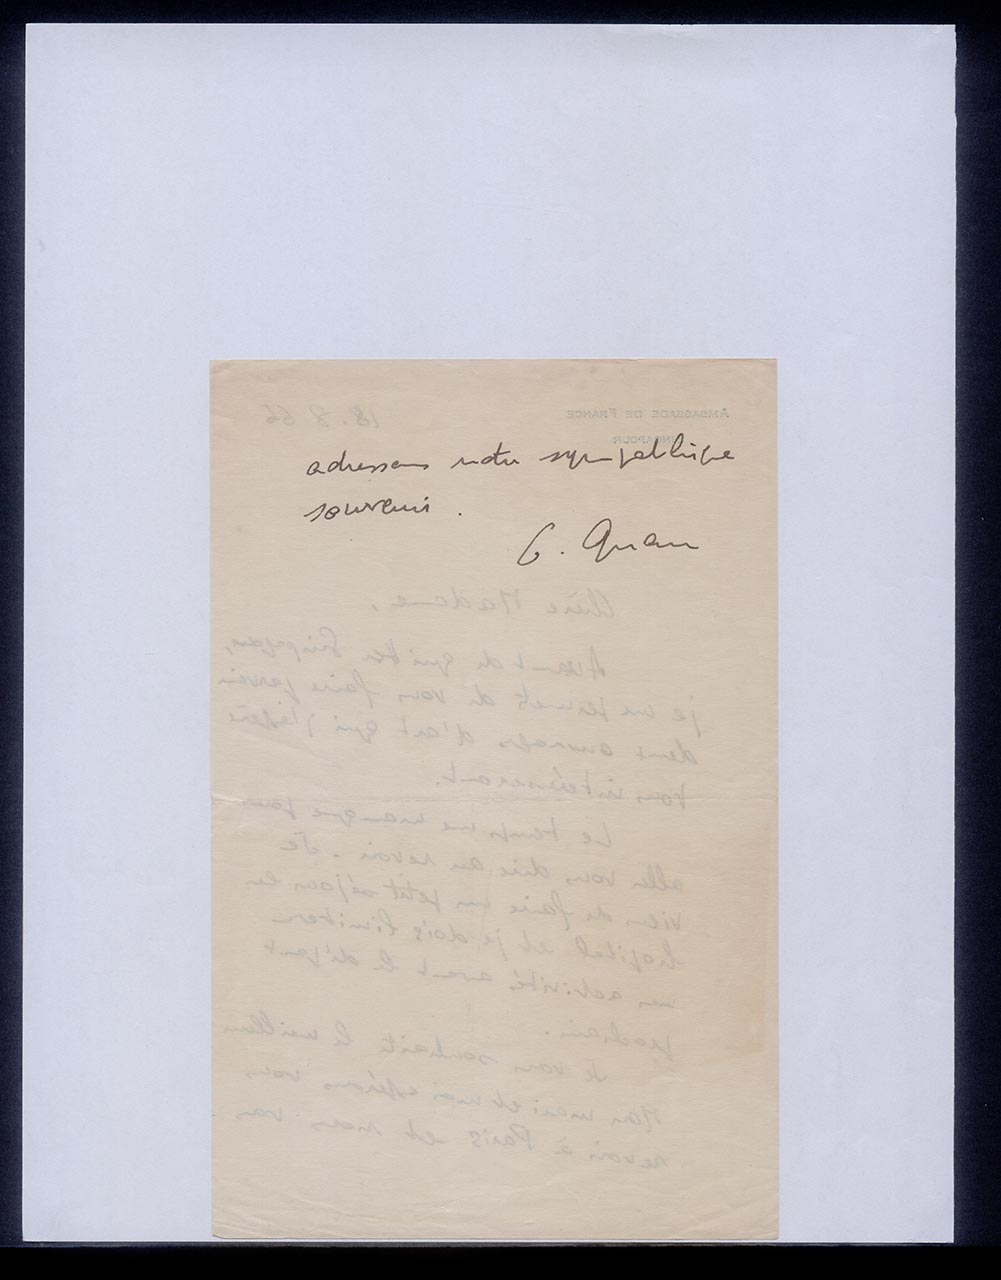 AMBASSADE DE FRANCE 18.8.66
SINGAPOUR
adressons notre sympathique
souvenir.
G.
Chère Madame,
Avant de quitter Singapour,
je me permets de vous faire parvenir
deux ouvrages d'art qui j'espère
vous intéresseront.
Le temps me manque pour
aller vous dire au revoir. Je
viens de faire un petit séjour en
hopital et je dois limiter
mes activités avant le départ
prochain.
Je vous souhaite le meilleur
Mon mari et moi espérons vous
revoir à Paris et nous vous